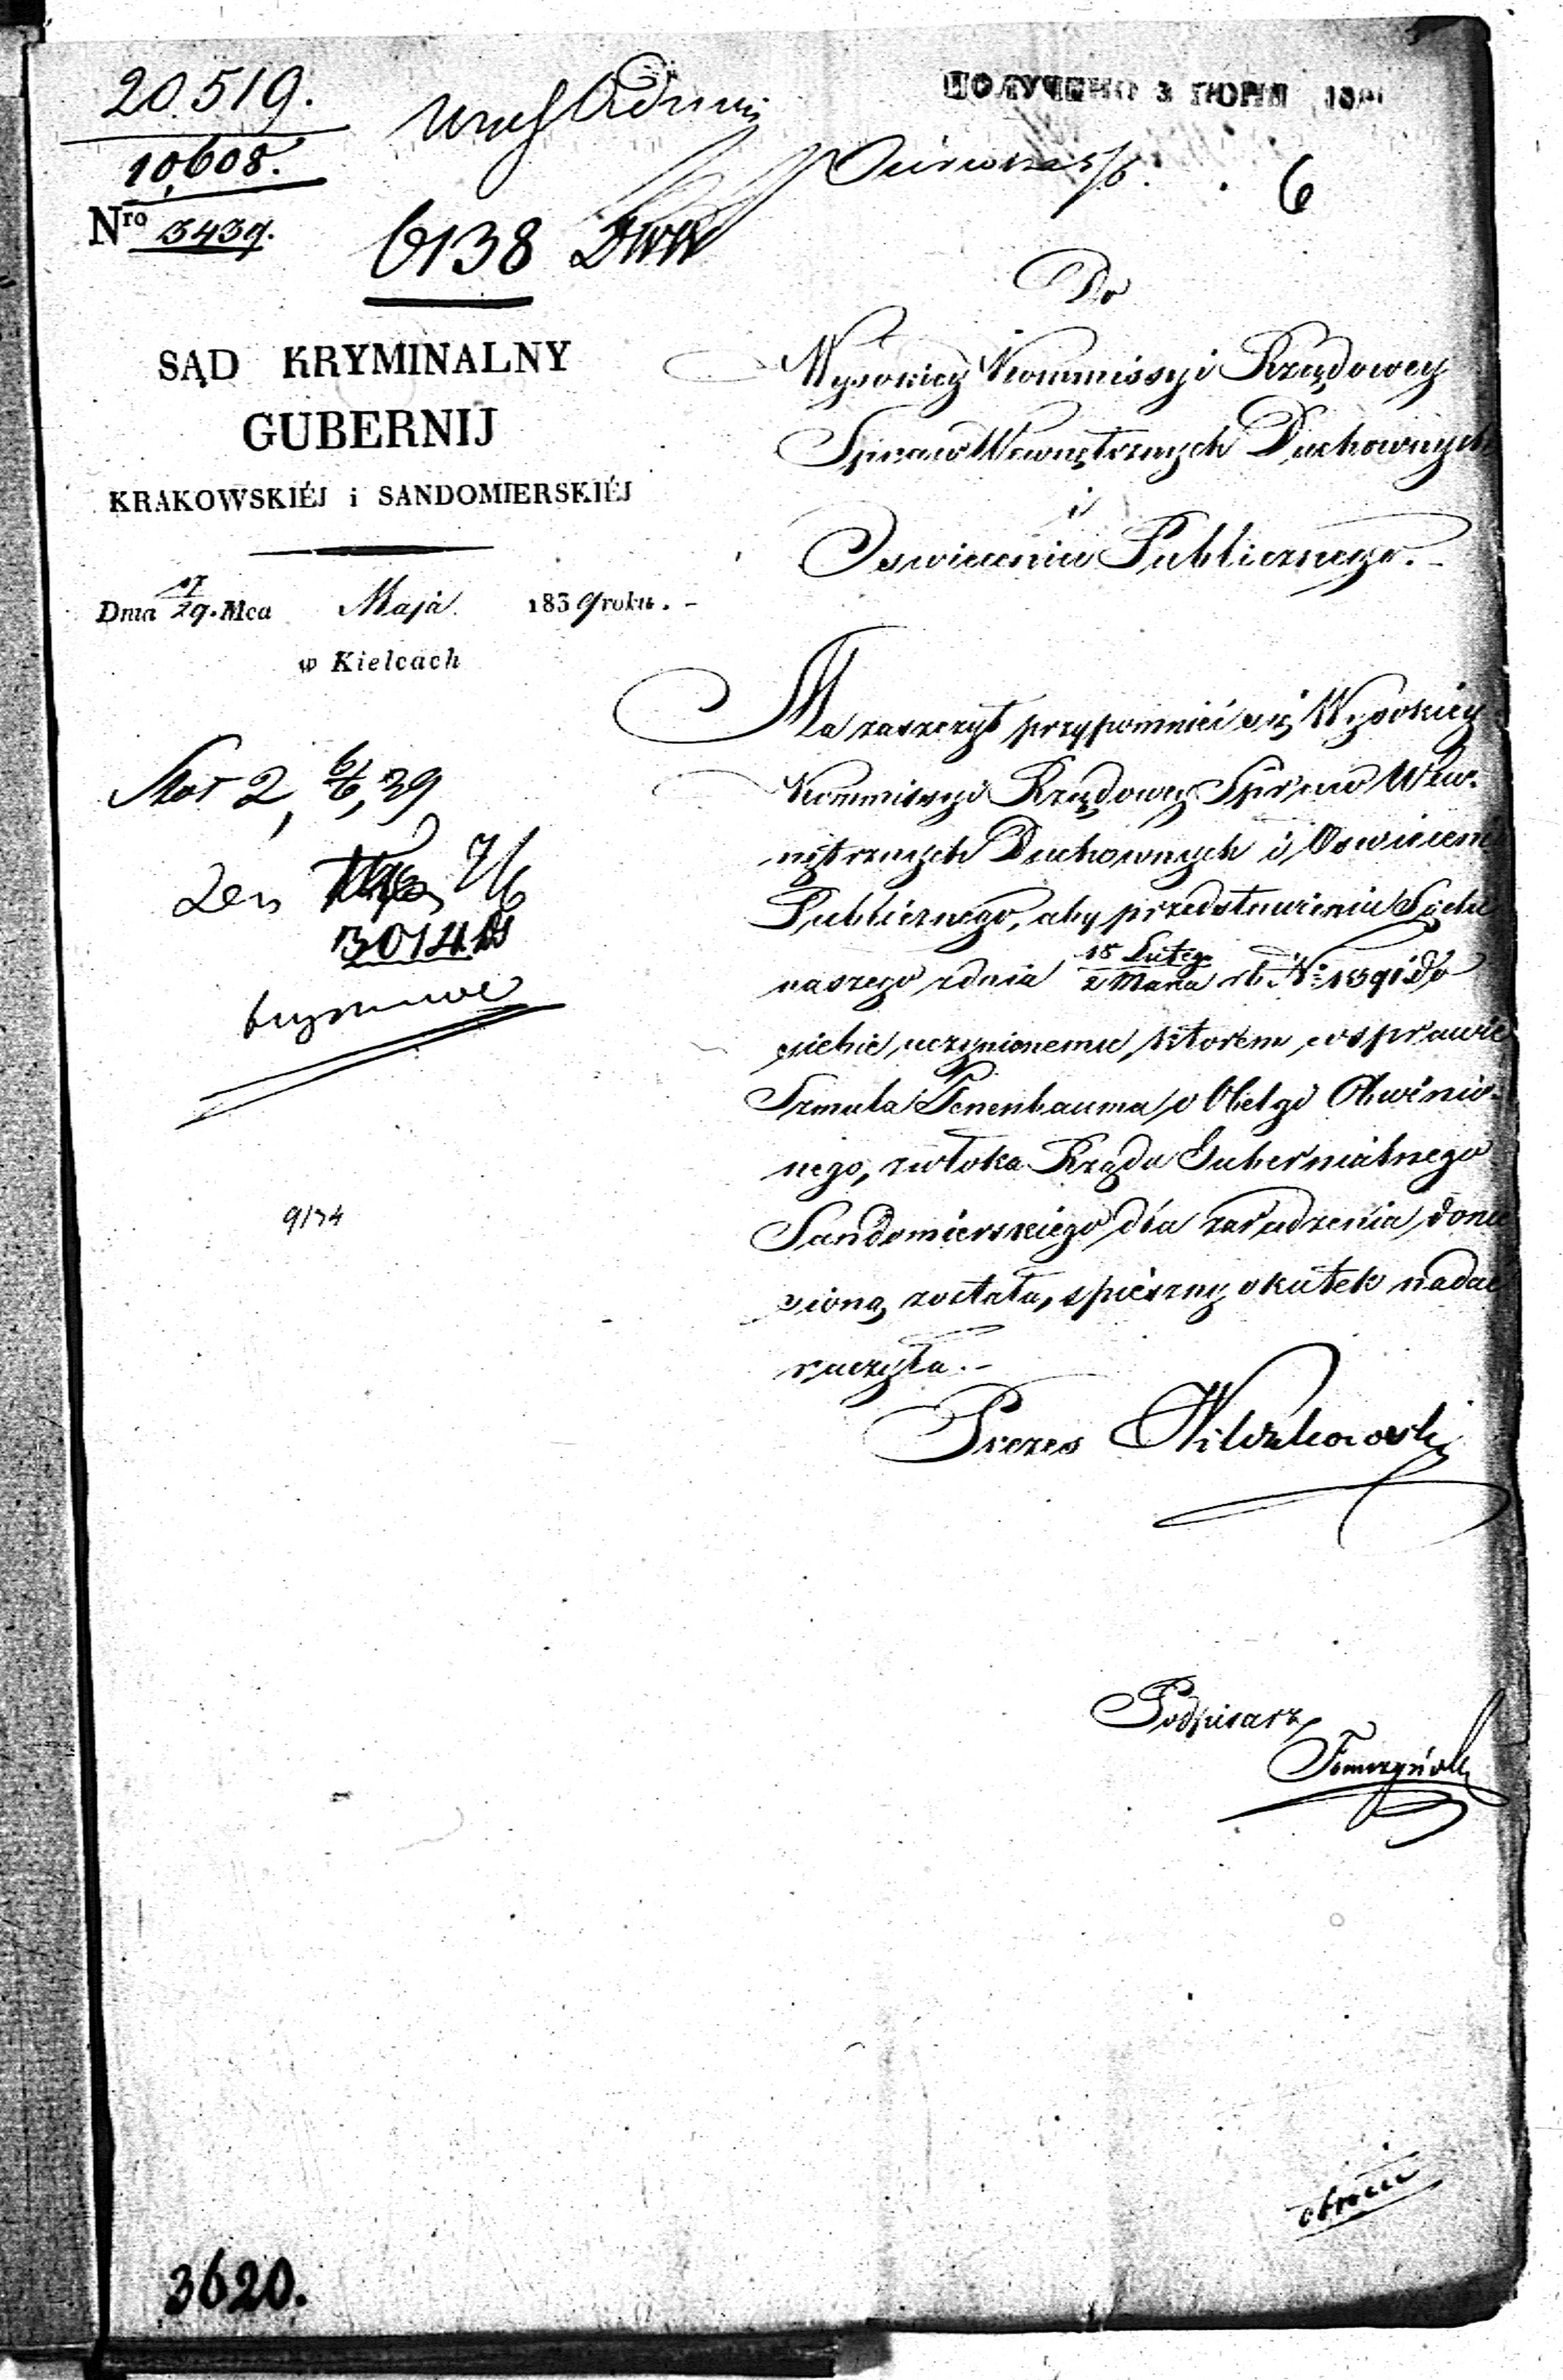 20.519.
10,608.
Nro 3439.
6138
ПОЛУЧЕНО 3 ІЮНЯ 18
6
SĄD KRYMINALNY
GUBERNIJ
KRAKOWSKIÉJ i SANDOMIERSKIÉJ
Dnia 17/29. Mca Maja 1839 roku.
w Kielcach
2, 6/6, 39
7/6
3014
9134
Do
Wysokiey Kommissyi Rządowey
Spraw Wewnętrznych Duchownych
i
Oswiecenia Publicznego.
Ma zaszczyt przypomnieć się Wysokiey
Kommissyi Rządowey Spraw Wew-
nętrznych Duchownych i Oswieceni
Publicznego, aby przedstawieniu Sądu
naszego zdnia 18 Lutego/2 Marca rb. No 1391 do
siebie uczynionemu, którem w sprawie
Szmula Tenenbauma o Obelgi Obwinio-
nego, zwłoka Rządu Gubernialnego
Sandomierskiego dla zaradzenia donie
sioną została, spieszny skutek nadać
raczyła.-
Prezes
Podpisarz
obrócić
3620.